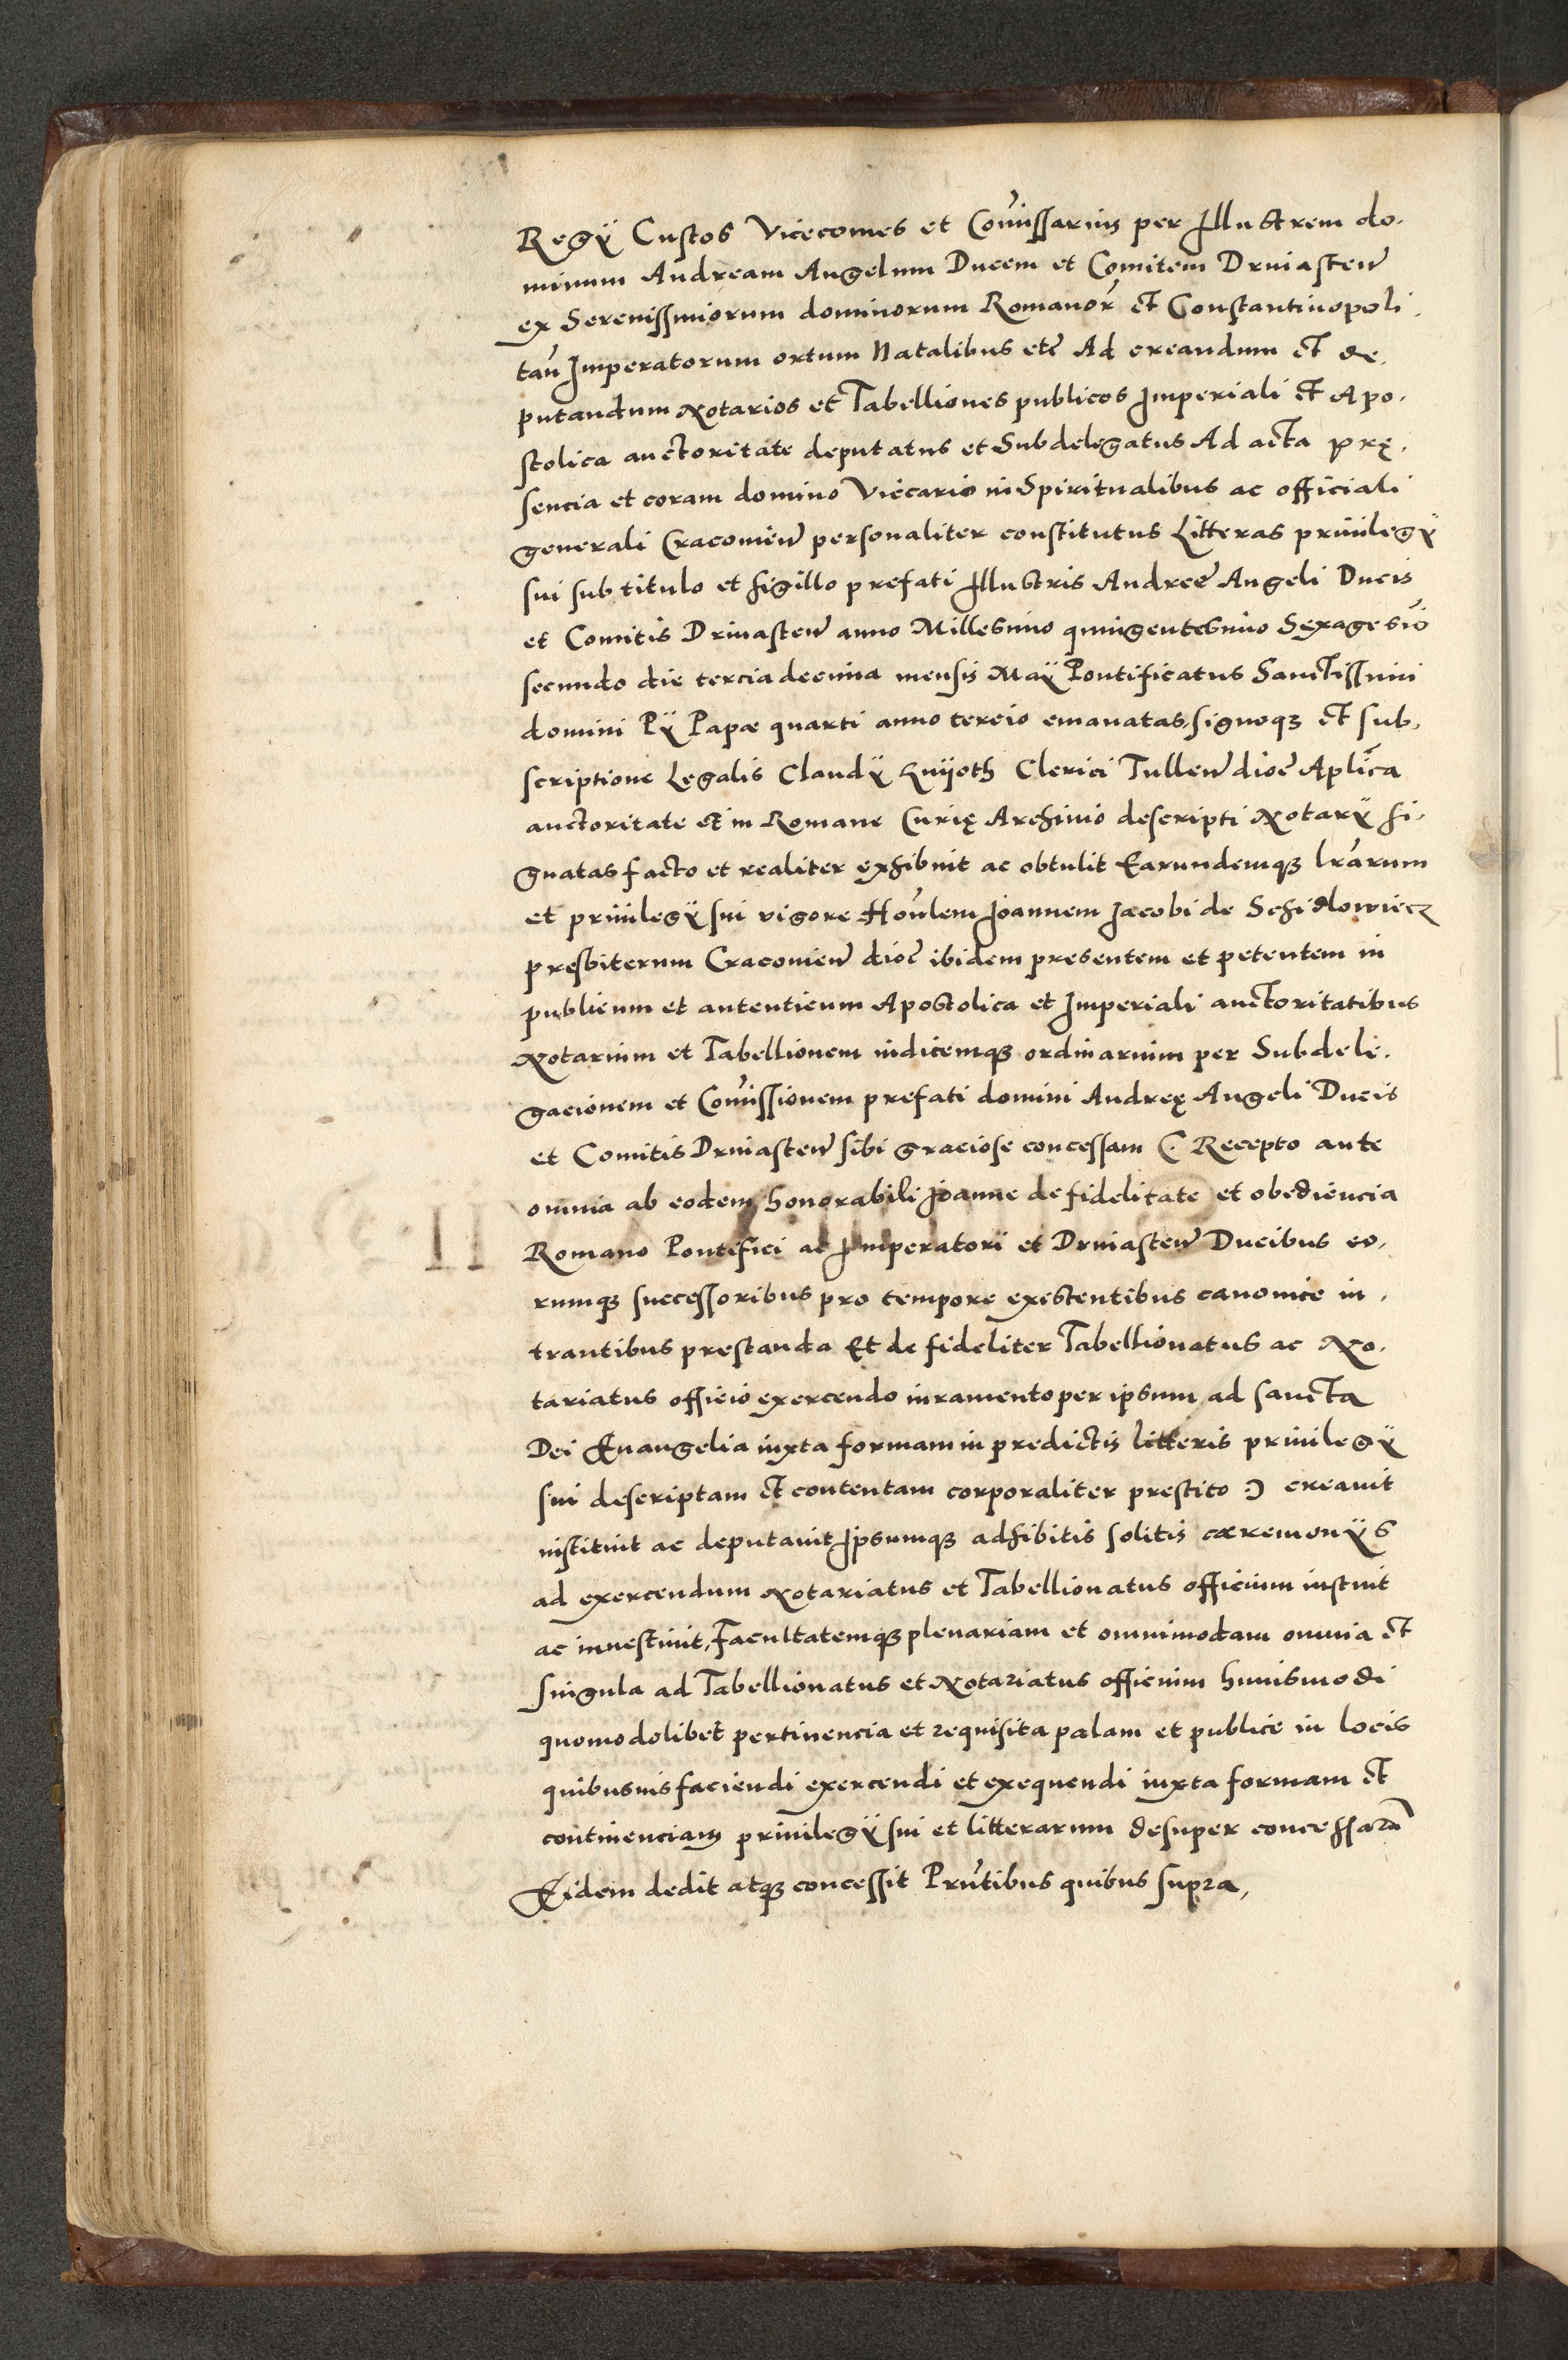 Regÿ Custos Vicecomes et Com̄issarius per Illustrem do-
minum Andream Angelum Ducem et Comitem Driuasten̄
ex Serenissimorum dominorum Romanor̄ et Constantinopoli-
tan̄ Imperatorum ortum Natalibus etc̄ Ad creandum et de-
putandum Notarios et Tabelliones publicos Imperiali et Apo-
stolica auctoritate deputatus et Subdelegatus Ad acta prę-
sencia et coram domino Vicario in Spiritualibus ac officiali
generali Cracouien̄ personaliter constitutus Litteras priuilegÿ
sui sub titulo et sigillo prefati Illustris Andree Angeli Ducis
et Comitis Driuasten̄ anno Millesimo quingentesimo Sexagesio̅
secundo die tercia decima mensis Maÿ Pontificatus Sanctissimi
domini Pÿ Papæ quarti anno tercio emanatas, signoqʒ et sub-
scriptione Legalis Claudÿ Clerici Tullen̄ dioc̄ Aplīca
auctoritate et in Romane Curię Archiuio descripti Notarÿ si-
gnatas facto et realiter exhibuit ac obtulit Earundemqʒ lr̄arum
et priuilegÿ sui vigore Hon̄lem Joannem Jacobi de Schidlowiecz
presbiterum Cracouien̄ dioc̄ ibidem presentem et petentem in
publicum et autenticum Apostolica et Imperiali auctoritatibus
Notarium et Tabellionem iudicemqʒ ordinarium per Subdele-
gacionem et Com̄issionem prefati domini Andreę Angeli Ducis
et Comitis Driuasten̄ sibi graciose concessam (: Recepto ante
omnia ab eodem honorabili Joanne de fidelitate et obediencia
Romano Pontifici ac Imperatori et Driuasten̄ Ducibus eo-
rumqʒ successoribus pro tempore existentibus canonice in-
trantibus prestanda Et de fideliter Tabellionatus ac No-
tariatus officio exercendo iuramento per ipsum ad sancta
Dei Euangelia iuxta formam in predictis litteris priuilegÿ
sui descriptam et contentam corporaliter prestito :) creauit
instituit ac deputauit Ipsumqʒ adhibitis solitis cæremonÿs
ad exercendum Notariatus et Tabellionatus officium instuit
ac inuestiuit, Facultatemqʒ plenariam et omnimodam omnia et
singula ad Tabellionatus et Notariatus officium huiusmodi
quomodolibet pertinencia et requisita palam et publice in locis
quibusuis faciendi exercendi et exequendi iuxta formam et
continenciam priuilegÿ sui et litterarum desuper concessar̄
Eidem dedit atqʒ concessit Prn̄tibus quibus supra,